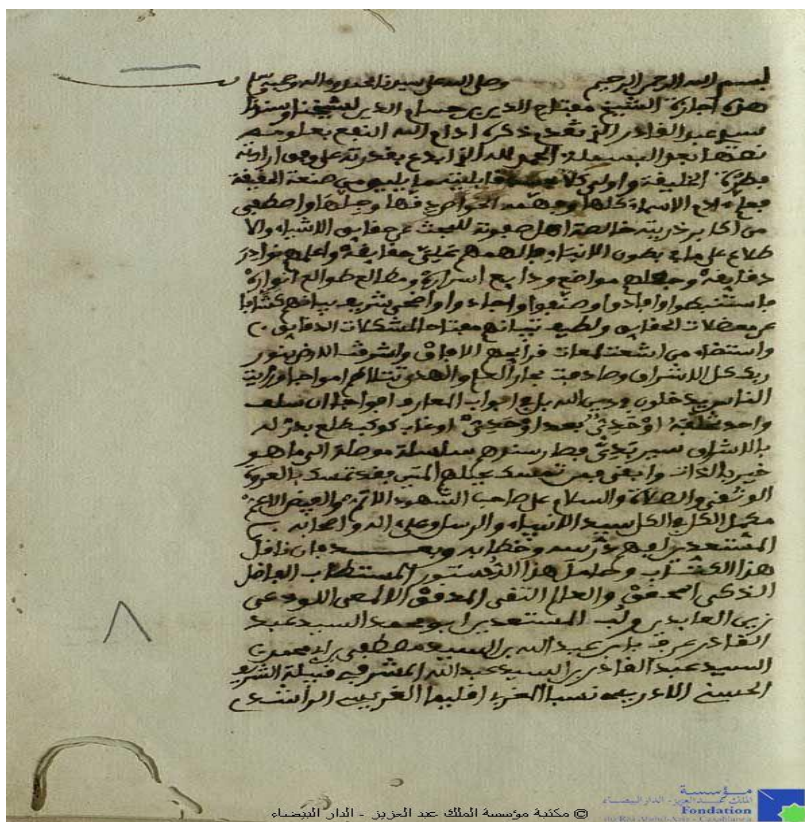 بسم الله الرحمن الرحيم وصلى الله على سيدنا محمد وءاله وصحبه
هذه اجازة الشيخ مفتاح الدين بن حسام الدين لشيخنا وسندنا
سيدي عبد القادر الذي تقدم ذكره ادام الله النفع بعلومه
نصها بعد البسملة الحمد لله الذي ابدع بقدرته على وفق ارادته
فطرة الخليقة واولى
فعلم ءادم الاسماء كلها وفهمه الخواص دقها وجلها واصطفى
من اكابر ذريته خالصة اهل صفوته للبحث عن حقايق الاشياء والا
طلاع على ما في بطون الانبياء والهمهم حقايقه واعلمهم نوادر
دقايقه وجعلهم مواضع ودايع اسراره ومطالع طوالع انواره
فاستنبطوا وافادوا وصنفوا واجادوا
عن معضلات الحقايق ولطيف تبيانهم مفتاح المشكلات الدقايق
واستضاء من اشعة لمعات الافاق واشرقت الارض بنور
ربك كل الاشراق وصادفت بحار العلم والهدى تتلاطم امواجا ورايت
الناس يدخلون في دين الله افواجا ان سلف
واحد خلفه اوحدي بعد اوحدي او غاب كوكب طلع بدر له
بالاشراق سلسلة موصلة الى ما هو
خير بالذات وابقى فمن تمسك بحبلهم المتين فقد تمسك بالعروة
الوثقى والصلاة والسلام على صاحب الشهود الاتم والفيض الاعم
مكمل الكل في الكل سيد الانبياء والرسل وعلى اله واصحابه
المستعدين لفهم وخطابه وبعد فان ناقل
هذا الكتاب وحامل هذا الدستور المستطاب الفاضل
الذكي المحقق والعالم التقي المدقق الالمعي اللوذعي
زين العابدين المستعدين ابو محمد السيد عبد
القادر عرف بابن عبد الله بن السيد مصطفى بن محمد بن
السيد عبد القادر بن السيد عبد الله المشرفي قبيلة الشريف
الحسني الادريسي نسبا اقليما الغريسي الراشدي
مؤسسة
الملك عبد العزيز - الدار البيضاء
Fondation
© مكتبة مؤسسة الملك عبد العزيز - الدار البيضاء